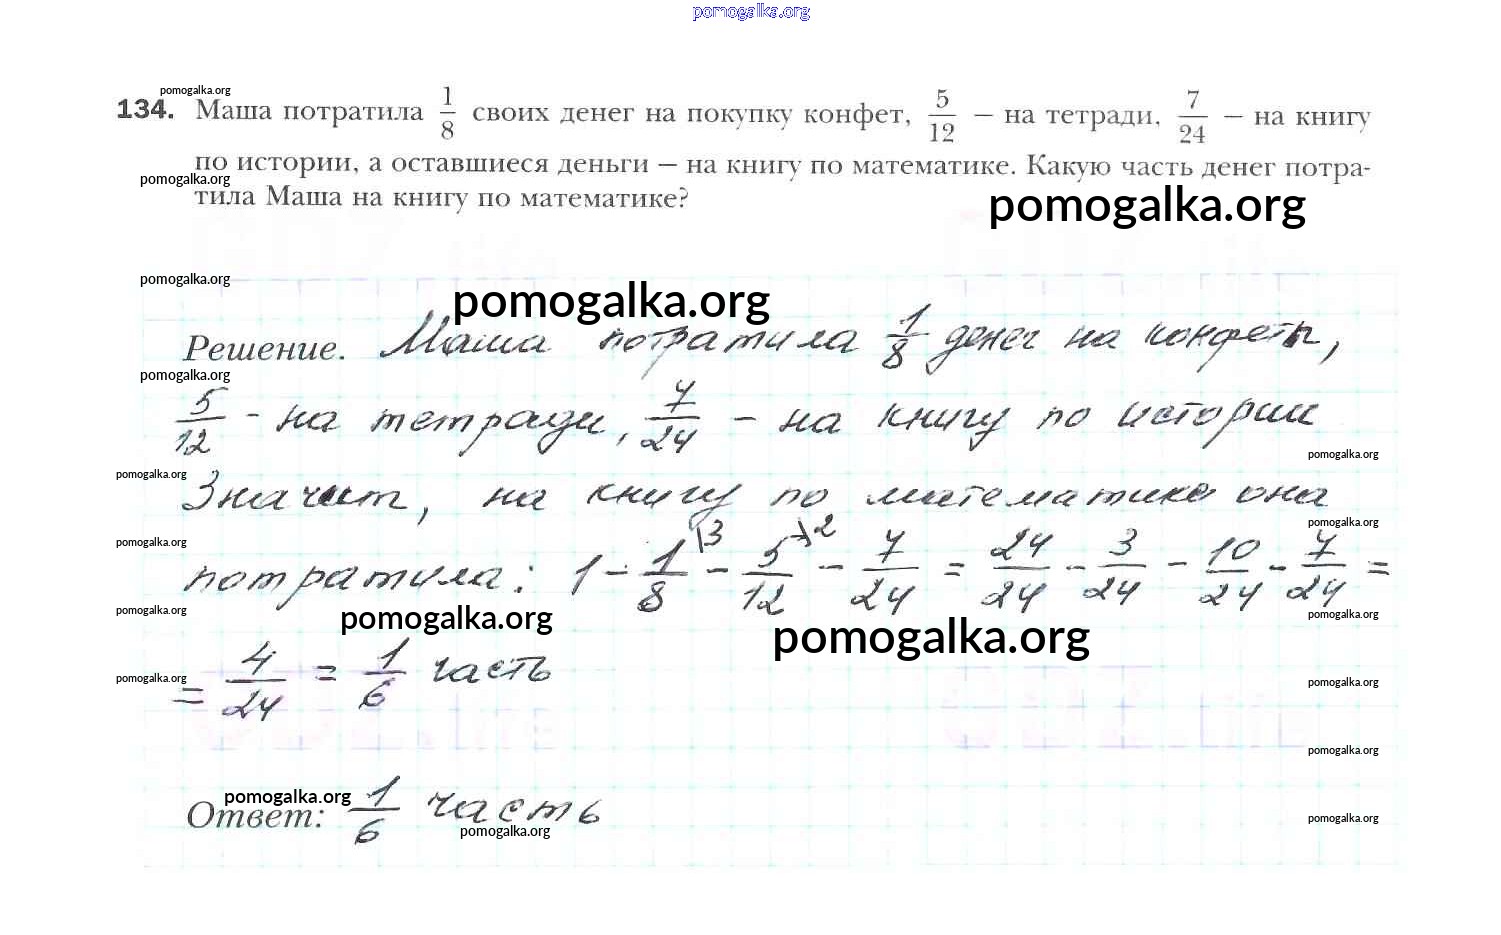 pomogalka.org
pomogalka.org
134. Маша потратила 1/8 своих денег на покупку конфет, 5/12 — на тетради, 7/24 — на книгу
по истории, а оставшиеся деньги — на книгу по математике. Какую часть денег потра-
pomogalka.org
тила Маша на книгу по математике?
pomogalka.org
pomogalka.org
pomogalka.org
Решение. Маша потратила 1/8 денег на конфеты,
pomogalka.org
5/12 - на тетради, 7/24 - на книгу по истории
pomogalka.org
pomogalka.org
Значит, на книгу по математике она
pomogalka.org
pomogalka.org
потратила: 1 - 1/8 \3 - 5/12 \2 - 7/24 = 24/24 - 3/24 - 10/24 - 7/24 =
pomogalka.org
pomogalka.org
pomogalka.org
pomogalka.org
= 4/24 = 1/6 часть
pomogalka.org
pomogalka.org
pomogalka.org
pomogalka.org
Ответ: 1/6 часть
pomogalka.org
pomogalka.org